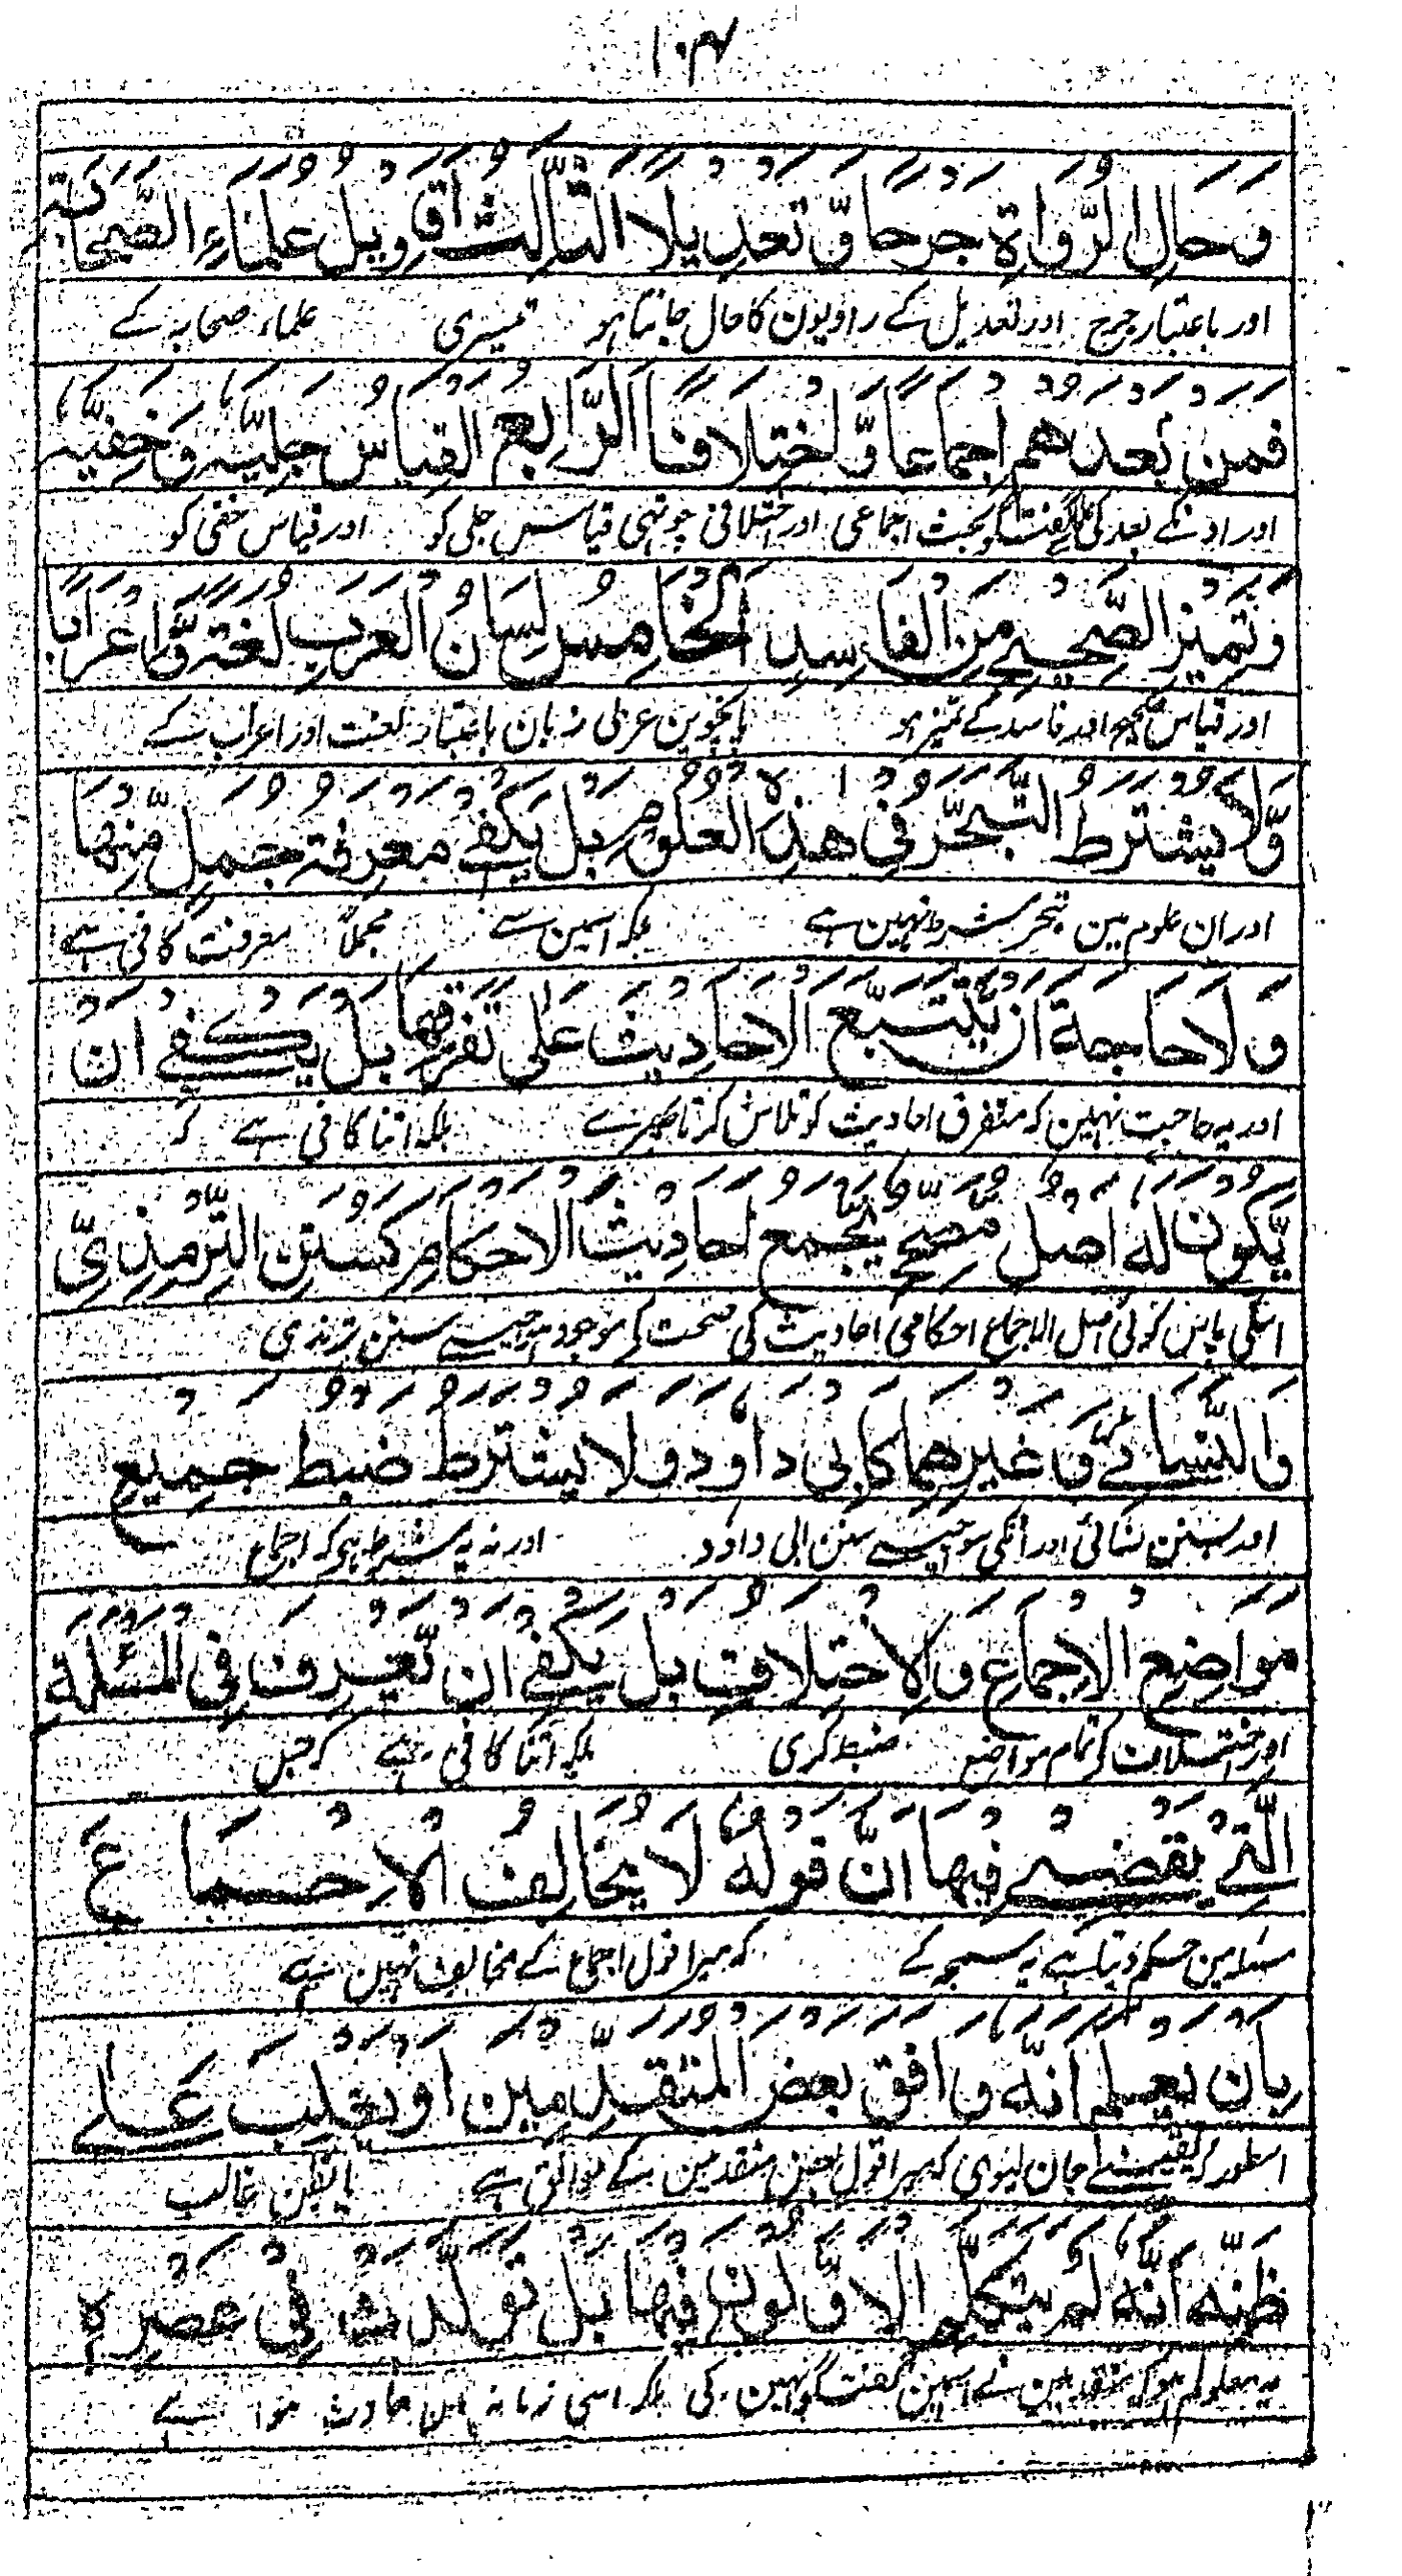 ١٠٤
وَحَالِ الرُّوَاةِ جَرْحًا وَّتَعْدِيلًا الثَّالِثُ اَقَاوِيْلُ عُلَمَاءِ الصَّحَابَةِ
اور باعتبار جرح اور تعدیل کے راویون کا حال جانتا ہو تیسری علماء صحابہ کے
فَمَنْ بَعْدَهُمْ اِجْمَاعًا وَّاخْتِلَافًا اَلرَّابِعُ الْقِيَاسُ جَلِيُّهٗ وَخَفِيُّهٗ
اور اون کے بعد کی گفتگو بحث اجماعی اور اختلافی چوتھی قیاس جلی کو اور قیاس خفی کو
وَتَمِيْزُ الصَّحِيْحِ مِنَ الْفَاسِدِ اَلْخَامِسُ لِسَانُ الْعَرَبِ لُغَةً وَّاِعْرَابًا
اور قیاس صحیح اور فاسد کے تمیز ہو پانچوین عربی زبان باعتبار لغت اور اعراب کے
وَّلَا يُشْتَرَطُ التَّبَحُّرُ فِي هٰذِهِ الْعُلُوْمِ بَلْ يَكْفِيْ مَعْرِفَةُ جُمَلٍ مِّنْهَا
اور ان علوم مین تبحر شرط نہین ہے بلکہ اسمین سے مجملاً معرفت کافی ہے
وَلَا حَاجَةَ اَنْ يَّتَتَبَّعَ الْاَحَادِيْثَ عَلٰى تَفَرُّقِهَا بَلْ يَكْفِيْ اَنْ
اور یہ حاجت نہین کہ متفرق احادیث کو تلاش کرتا پھرے بلکہ اتنا کافی ہے کہ
يَّكُوْنَ لَهٗ اَصْلٌ مُصَحَّحٌ يَّجْمَعُ اَحَادِيْثَ الْاَحْكَامِ كَسُنَنِ التِّرْمِذِيِّ
اسکی پاس کوئی اصل الاجماع احکامی احادیث کی صحت کے موجود ہو جیسے سنن ترمذی
وَالنَّسَائِيِّ وَغَيْرِهِمَا كَاَبِيْ دَاوُدَ وَلَا يُشْتَرَطُ ضَبْطُ جَمِيْعِ
اور سنن نسائی اور انکی سو جیسے سنن ابی داؤد اور نہ یہ شرط ہی کہ اجماع
مَوَاضِعِ الْاِجْمَاعِ وَالْاِخْتِلَافِ بَلْ يَكْفِيْ اَنْ يَّعْرِفَ فِي الْمَسْئَلَةِ
اور اختلافات کی تمام مواضع ضبط کری بلکہ اتنا کافی ہے کہ جس
الَّتِيْ يَقْضِيْ فِيْهَا اَنَّ قَوْلَهٗ لَا يُخَالِفُ الْاِجْمَاعَ
مسئلہ مین حکم دیتا ہے یہ سمجھ کے کہ میرا قول اجماع کے مخالف نہین ہے
بِاَنْ يَعْلَمَ اَنَّهٗ وَافَقَ بَعْضَ الْمُتَقَدِّمِيْنَ اَوْ يَغْلِبَ عَلٰى
اسطور کہ یقینے جان لیوی کہ میرا قول بعض متقدمین کے موافق ہے یا بظن غالب
ظَنِّهٖ اَنَّهٗ لَمْ يَتَكَلَّمِ الْاَوَّلُوْنَ فِيْهَا بَلْ تَوَلَّدَتْ فِيْ عَصْرِهٖ
یہ معلوم ہو کہ متقدمین نے اسمین گفتگو نہین کی بلکہ اسی زمانہ مین حادث ہوا ہے